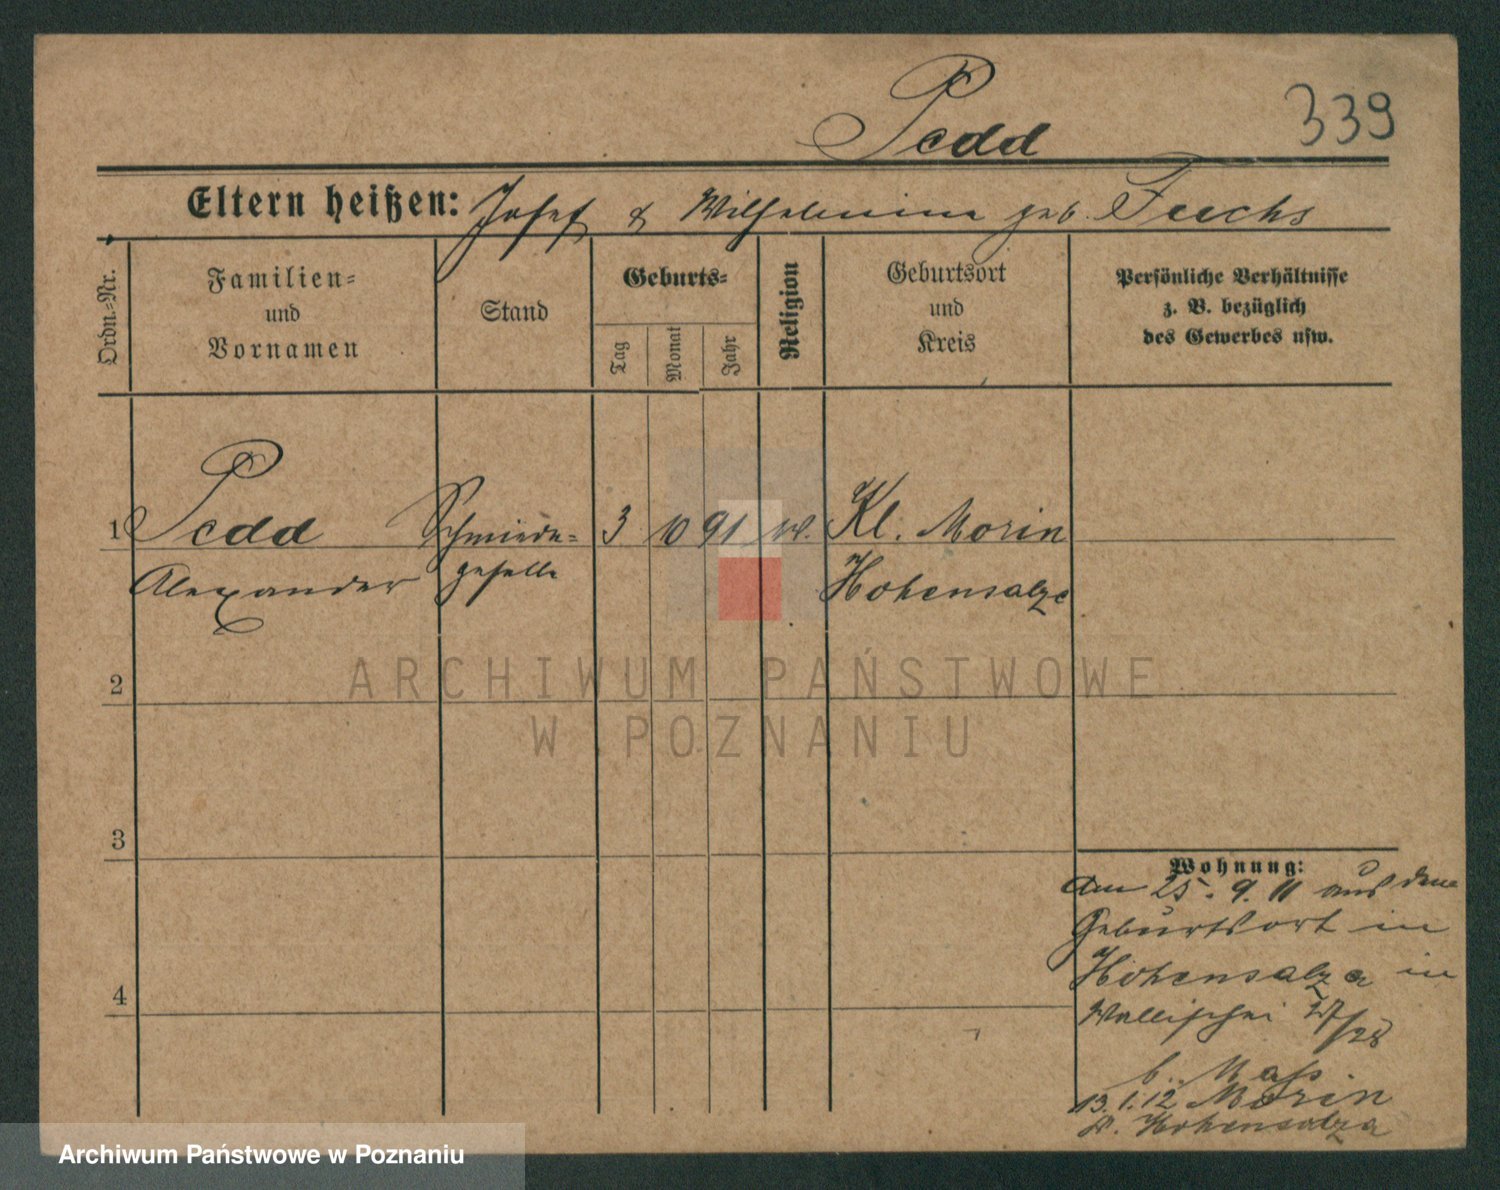 Pedd
339
Eltern heißen: Josef & Wilhelmine geb. Fuchs
Ordn.-Nr.
Familien-
und
Vornamen
Stand
Geburts-
Tag
Monat
Jahr
Religion
Geburtsort
und
Kreis
Persönliche Verhältnisse
z. B. bezüglich
des Gewerbes usw.
1 Pedd Schmiede- 3 10 91 Kl. Morin
Alexander geselle Hohensalza
2
3
4
Wohnung:
Am 25. 9. 11 aus dem
Geburtsort in
Hohensalza in
Wallischei 27/28
b. Maß
13.1.12 Morin
Kr. Hohensalza
ARCHIWUM PAŃSTWOWE
W POZNANIU
Archiwum Państwowe w Poznaniu